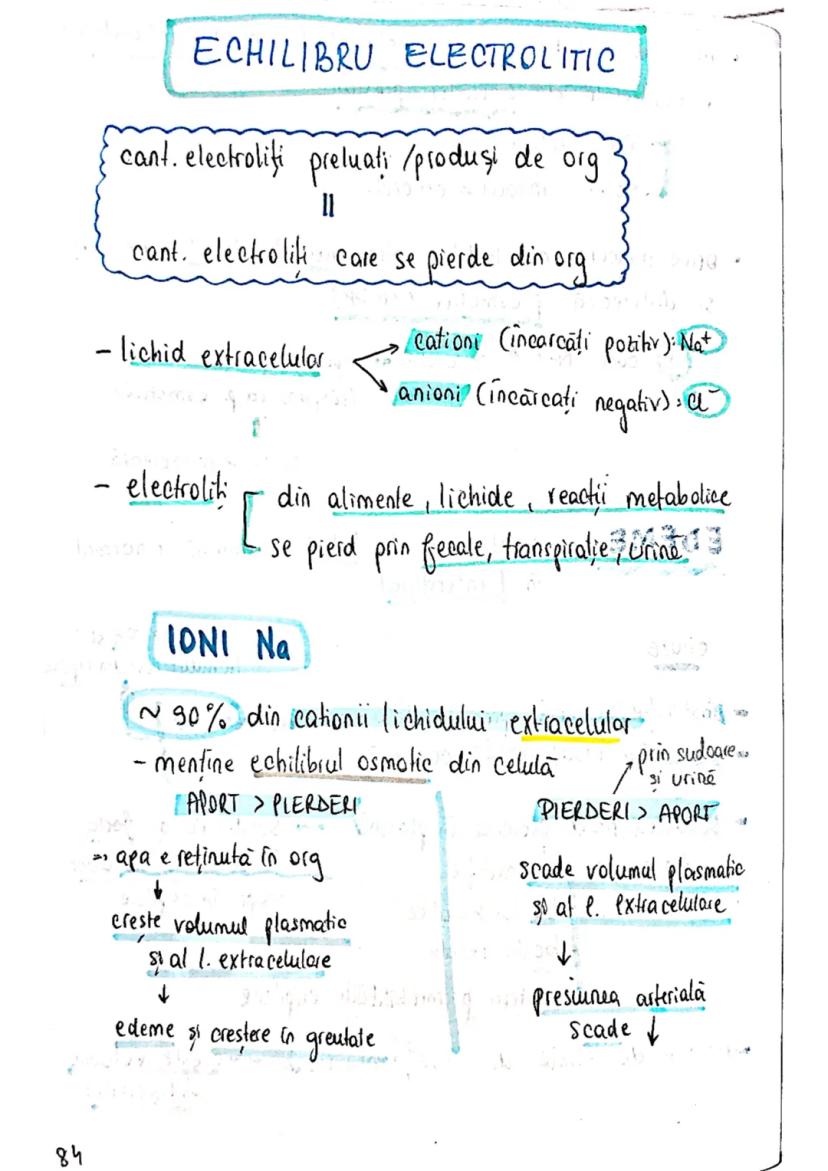 ECHILIBRU ELECTROLITIC
cant. electroliți preluați /produși de org
=
cant. electroliți care se pierde din org
- lichid extracelular
cationi (încărcați pozitiv): Na⁺
anioni (încărcați negativ): Cl⁻
- electroliți
din alimente, lichide, reacții metabolice
se pierd prin fecale, transpirație, urină
IONI Na
~ 90% din cationii lichidului extracelular
- menține echilibrul osmotic din celulă
APORT > PIERDERI
=> apa e reținută în org
↓
crește volumul plasmatic
și al l. extracelulare
↓
edeme și creștere în greutate
prin sudoare
și urină
PIERDERI > APORT
scade volumul plasmatic
și al l. extracelulare
↓
presiunea arterială
scade ↓
84